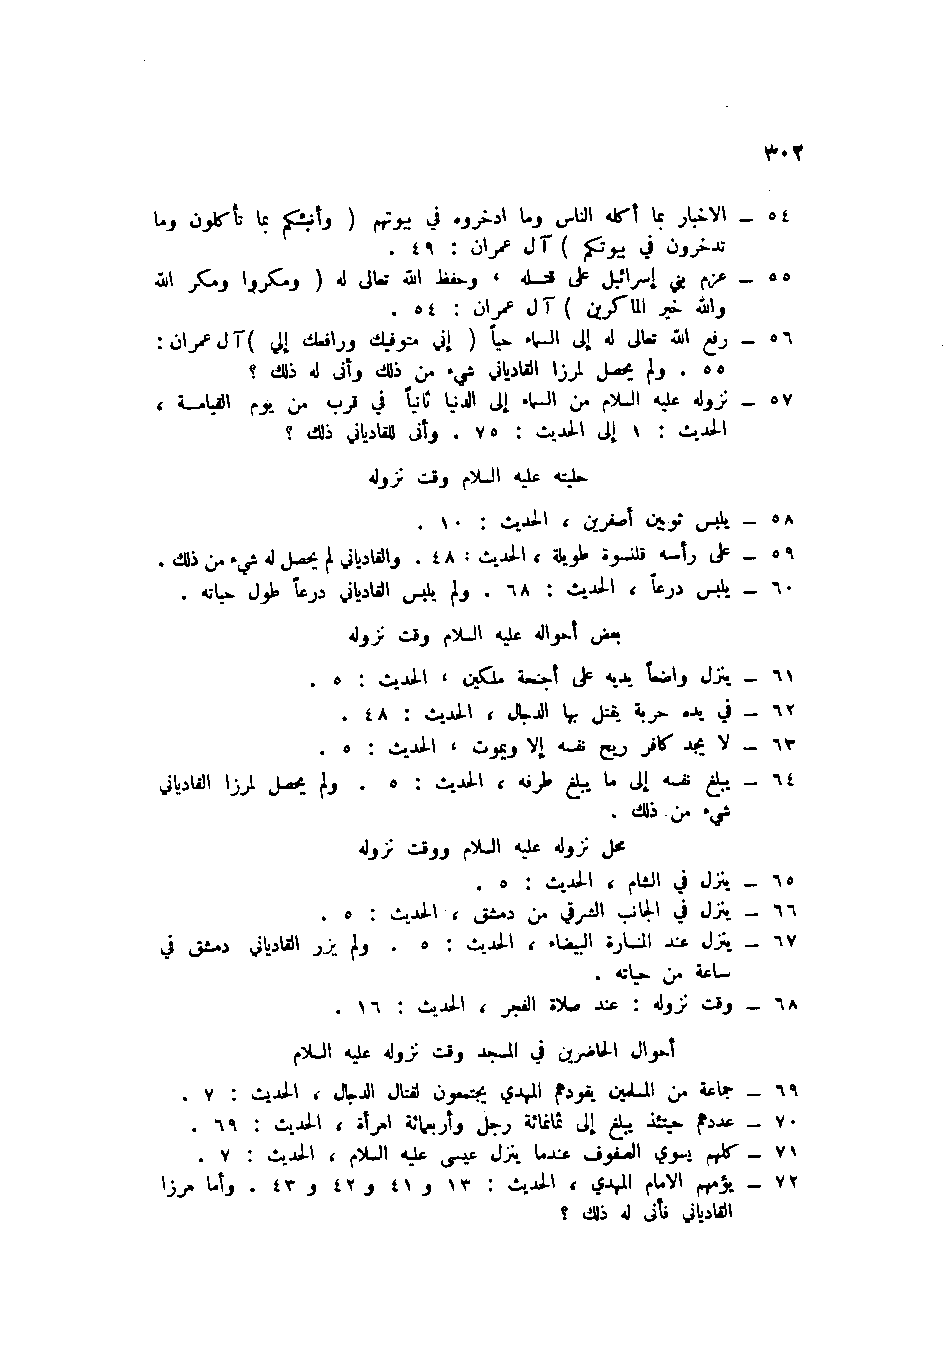 ٣٠٢
٥٤ – الاخبار بما أكله الناس وما ادخروه في بيوتهم ( وأنبئكم بما تأكلون وما
تدخرون في بيوتكم ) آل عمران : ٤٩ .
٥٥ – عزم بني إسرائيل على قتله ، وحفظ الله تعالى له ( ومكروا ومكر الله
والله خير الماكرين ) آل عمران : ٥٤ .
٥٦ – رفع الله تعالى له إلى السماء حياً ( إني متوفيك ورافعك إلي )آل عمران :
٥٥ . ولم يحصل لمرزا القادياني شيء من ذلك وأنى له ذلك ؟
٥٧ – نزوله عليه السلام من السماء إلى الدنيا ثانياً في قرب من يوم القيامة ،
الحديث : ١ إلى الحديث : ٧٥ . وأنى للقادياني ذلك ؟
حليته عليه السلام وقت نزوله
٥٨ – يلبس ثوبين أصفرين ، الحديث : ١٠ .
٥٩ – على رأسه قلنسوة طويلة ، الحديث : ٤٨ . والقادياني لم يحصل له شيء من ذلك .
٦٠ – يلبس درعاً ، الحديث : ٦٨ . ولم يلبس القادياني درعاً طول حياته .
بعض أحواله عليه السلام وقت نزوله
٦١ – ينزل واضعاً يديه على أجنحة ملكين ، الحديث : ٥ .
٦٢ – في يده حربة يقتل بها الدجال ، الحديث : ٤٨ .
٦٣ – لا يجد كافر ريح نفسه إلا ويموت ، الحديث : ٥ .
٦٤ – يبلغ نفسه إلى ما يبلغ طرفه ، الحديث : ٥ . ولم يحصل لمرزا القادياني
شيء من ذلك .
محل نزوله عليه السلام ووقت نزوله
٦٥ – ينزل في الشام ، الحديث : ٥ .
٦٦ – ينزل في الجانب الشرقي من دمشق ، الحديث : ٥ .
٦٧ – ينزل عند المنارة البيضاء ، الحديث : ٥ . ولم يزر القادياني دمشق في
ساعة من حياته .
٦٨ – وقت نزوله : عند صلاة الفجر ، الحديث : ١٦ .
أحوال الحاضرين في المسجد وقت نزوله عليه السلام
٦٩ – جماعة من المسلمين يقودهم المهدي يجتمعون لقتال الدجال ، الحديث : ٧ .
٧٠ – عددهم حينئذ يبلغ إلى ثمانمائة رجل وأربعمائة امرأة ، الحديث : ٦٩ .
٧١ – كلهم يسوي الصفوف عندما ينزل عيسى عليه السلام ، الحديث : ٧ .
٧٢ – يؤمهم الامام المهدي ، الحديث : ١٣ و ٤١ و ٤٢ و ٤٣ . وأما مرزا
القادياني فأنى له ذلك ؟